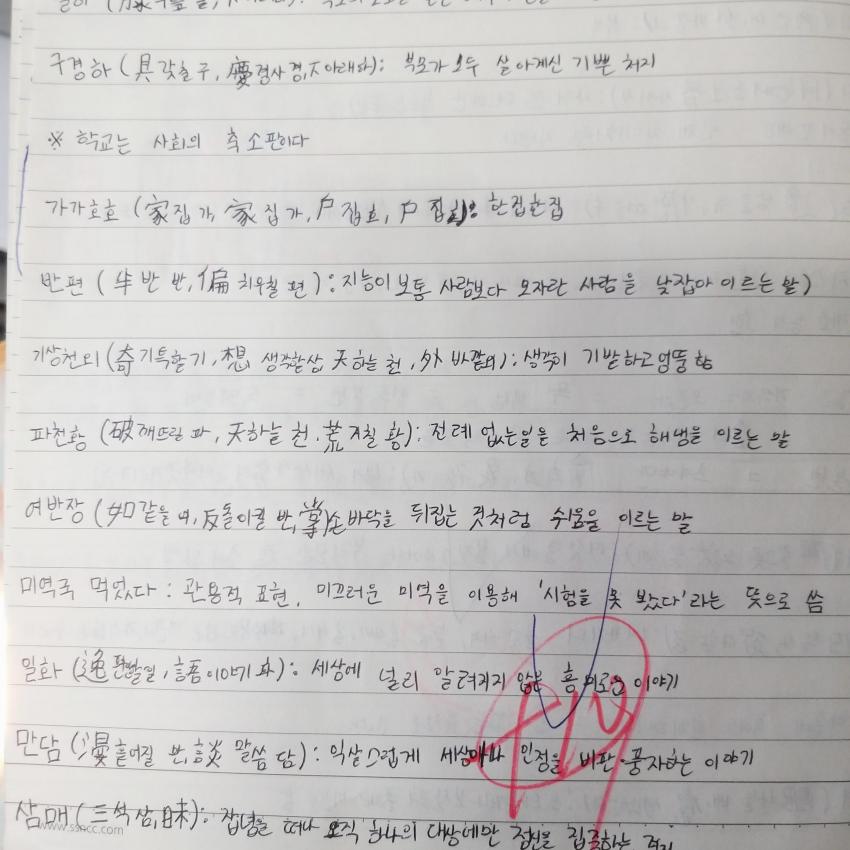 구경하 (具 갖출 구, 慶 경사 경, 下 아래 하): 부모가 모두 살아계신 기쁜 처지
※ 학교는 사회의 축소판이다
가가호호 (家 집 가, 家 집 가, 戶 집 호, 戶 집 호): 한집한집
반편 (半 반 반, 偏 치우칠 편): 지능이 보통 사람보다 모자란 사람을 낮잡아 이르는 말)
기상천외 (奇 기특할 기, 想 생각할 상 天 하늘 천, 外 바깥 외): 생각이 기발하고 엉뚱함
파천황 (破 깨뜨릴 파, 天 하늘 천. 荒 거칠 황): 전례 없는 일을 처음으로 해냄을 이르는 말
여반장 (如 같을 여, 反 돌이킬 반, 掌) 손바닥을 뒤집는 것처럼 쉬움을 이르는 말
미역국 먹었다: 관용적 표현, 미끄러운 미역을 이용해 '시험을 못 봤다'라는 뜻으로 씀
일화 (逸 편안할 일, 話 이야기 화): 세상에 널리 알려지지 않은 흥미로운 이야기
만담 (漫 흩어질 만, 談 말씀 담): 익살스럽게 세상이나 인정을 비판·풍자하는 이야기
삼매 (三 석 삼, 昧): 잡념을 떠나 오직 하나의 대상에만 정신을 집중하는 경지
ssncc.com